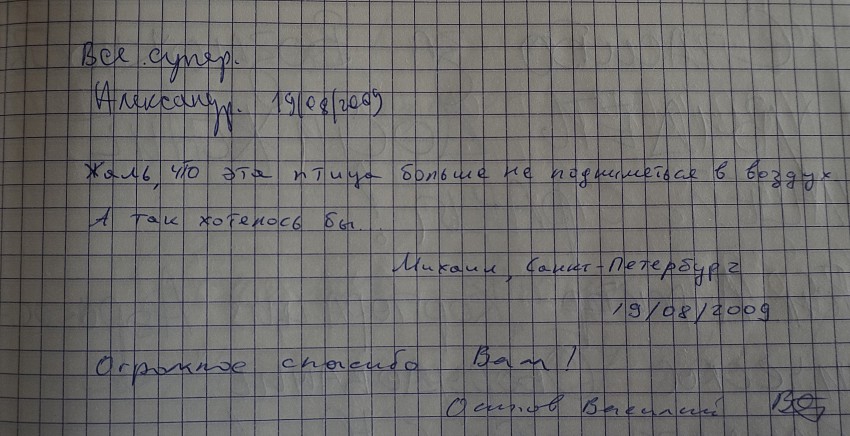 Все супер.
Александр. 19/08/2009
Жаль, что эта птица больше не подниметься в воздух
А так хотелось бы...
Михаил, Санкт-Петербург
19/08/2009
Огромное спасибо Вам!
Осипов Василий